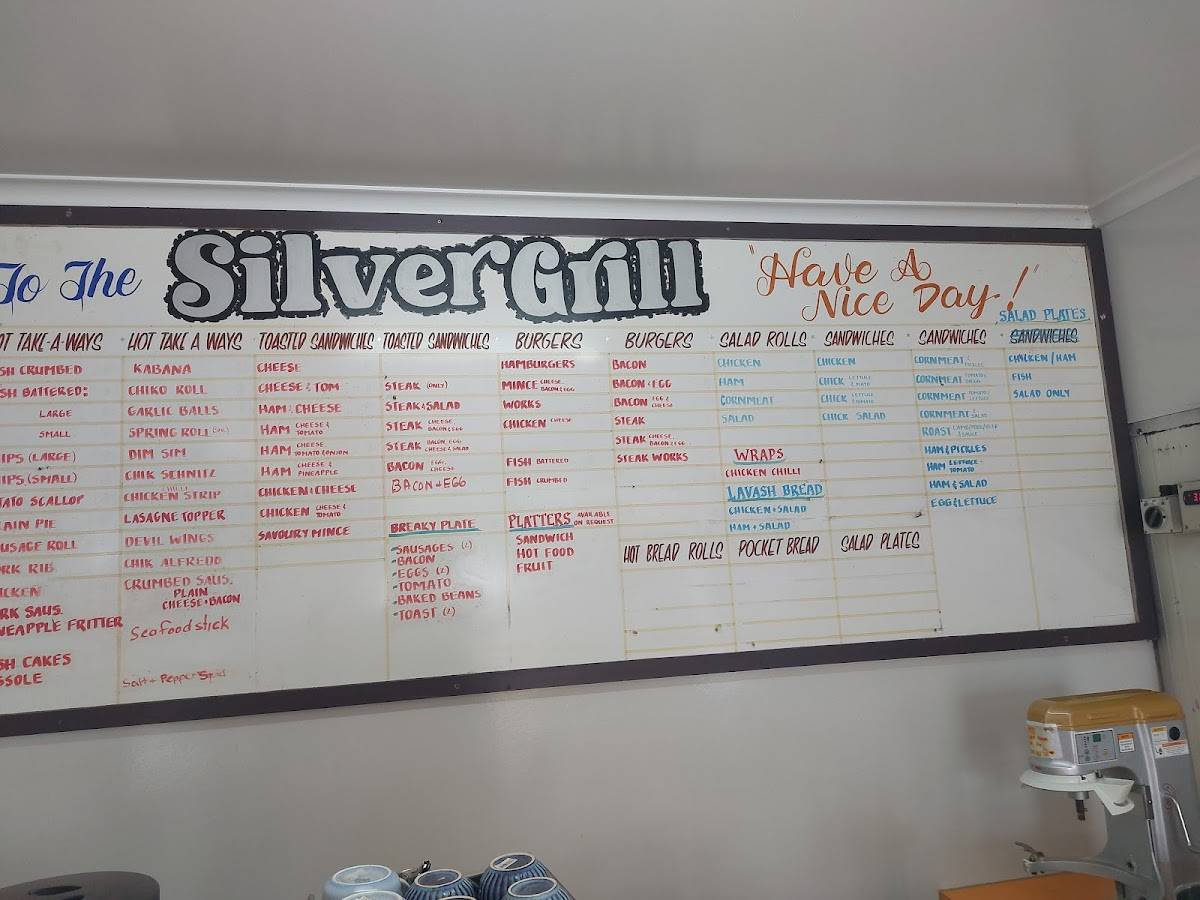 To The
Silver Grill
"Have A
Nice Day!"
HOT TAKE AWAYS
CRUMBED
BATTERED:
LARGE
SMALL
(LARGE)
(SMALL)
SCALLOP
PIE
ROLL
RIB
SAUS.
FRITTER
CAKES
HOT TAKE A WAYS
KABANA
CHIKO ROLL
GARLIC BALLS
SPRING ROLL
DIM SIM
CHIK SCHNITZ
CHILLI
CHICKEN STRIP
LASAGNE TOPPER
DEVIL WINGS
CHIK ALFREDO
CRUMBED SAUS.
PLAIN
CHEESE + BACON
Seafood stick
Salt + Pepper Squid
TOASTED SANDWICHES
CHEESE
CHEESE & TOM
HAM & CHEESE
HAM CHEESE & TOMATO
HAM CHEESE TOMATO & ONION
HAM CHEESE & PINEAPPLE
CHICKEN & CHEESE
CHICKEN CHEESE & TOMATO
SAVOURY MINCE
TOASTED SANDWICHES
STEAK (ONLY)
STEAK & SALAD
STEAK CHEESE, BACON & EGG
STEAK BACON, EGG CHEESE & SALAD
BACON EGG, CHEESE
BACON + EGG
BREAKY PLATE
-SAUSAGES (2)
-BACON
-EGGS (2)
-TOMATO
-BAKED BEANS
-TOAST (2)
BURGERS
HAMBURGERS
MINCE CHEESE, BACON & EGG
WORKS
CHICKEN CHEESE
FISH BATTERED
FISH CRUMBED
PLATTERS AVAILABLE ON REQUEST
SANDWICH
HOT FOOD
FRUIT
BURGERS
BACON
BACON & EGG
BACON EGG & CHEESE
STEAK
STEAK CHEESE, BACON & EGG
STEAK WORKS
HOT BREAD ROLLS
SALAD ROLLS
CHICKEN
HAM
CORNMEAT
SALAD
WRAPS
CHICKEN CHILLI
LAVASH BREAD
CHICKEN + SALAD
HAM + SALAD
POCKET BREAD
SANDWICHES
CHICKEN
CHICK LETTUCE & MAYO
CHICK LETTUCE & TOMATO
CHICK SALAD
SALAD PLATES
SANDWICHES
CORNMEAT & PICKLES
CORNMEAT TOMATO/ ONION
CORNMEAT TOMATO/ LETTUCE
CORNMEAT & SALAD
ROAST
HAM & PICKLES
HAM LETTUCE & TOMATO
HAM & SALAD
EGG & LETTUCE
SALAD PLATES
SANDWICHES
CHICKEN / HAM
FISH
SALAD ONLY